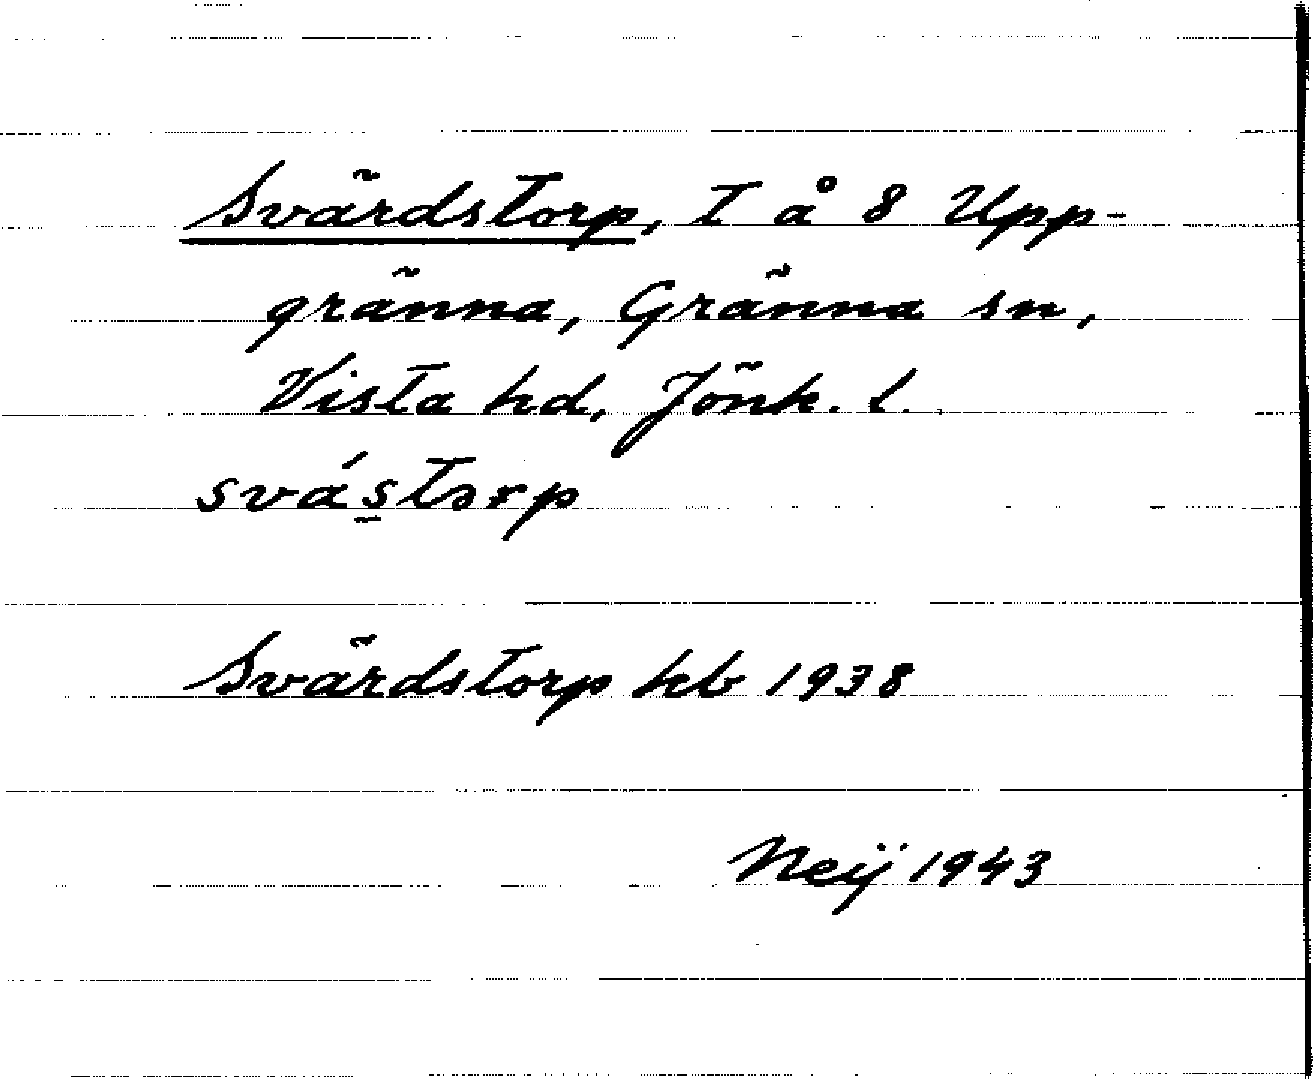 Svärdstorp, T å 8 Upp-
gränna, Gränna sn,
Vista hd, Jönk. l.
svás̱torp
Svärdstorp kb 1938
Neij 1943